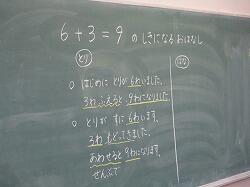 6+3=9のしきになるおはなし
とり
はな
○ はじめに とりが 6わいました。
3わ ふえると 9わになりました
○ とりが すに 6わいます。
3わ もどってきました。
あわせると 9わになります。
ぜんぶで